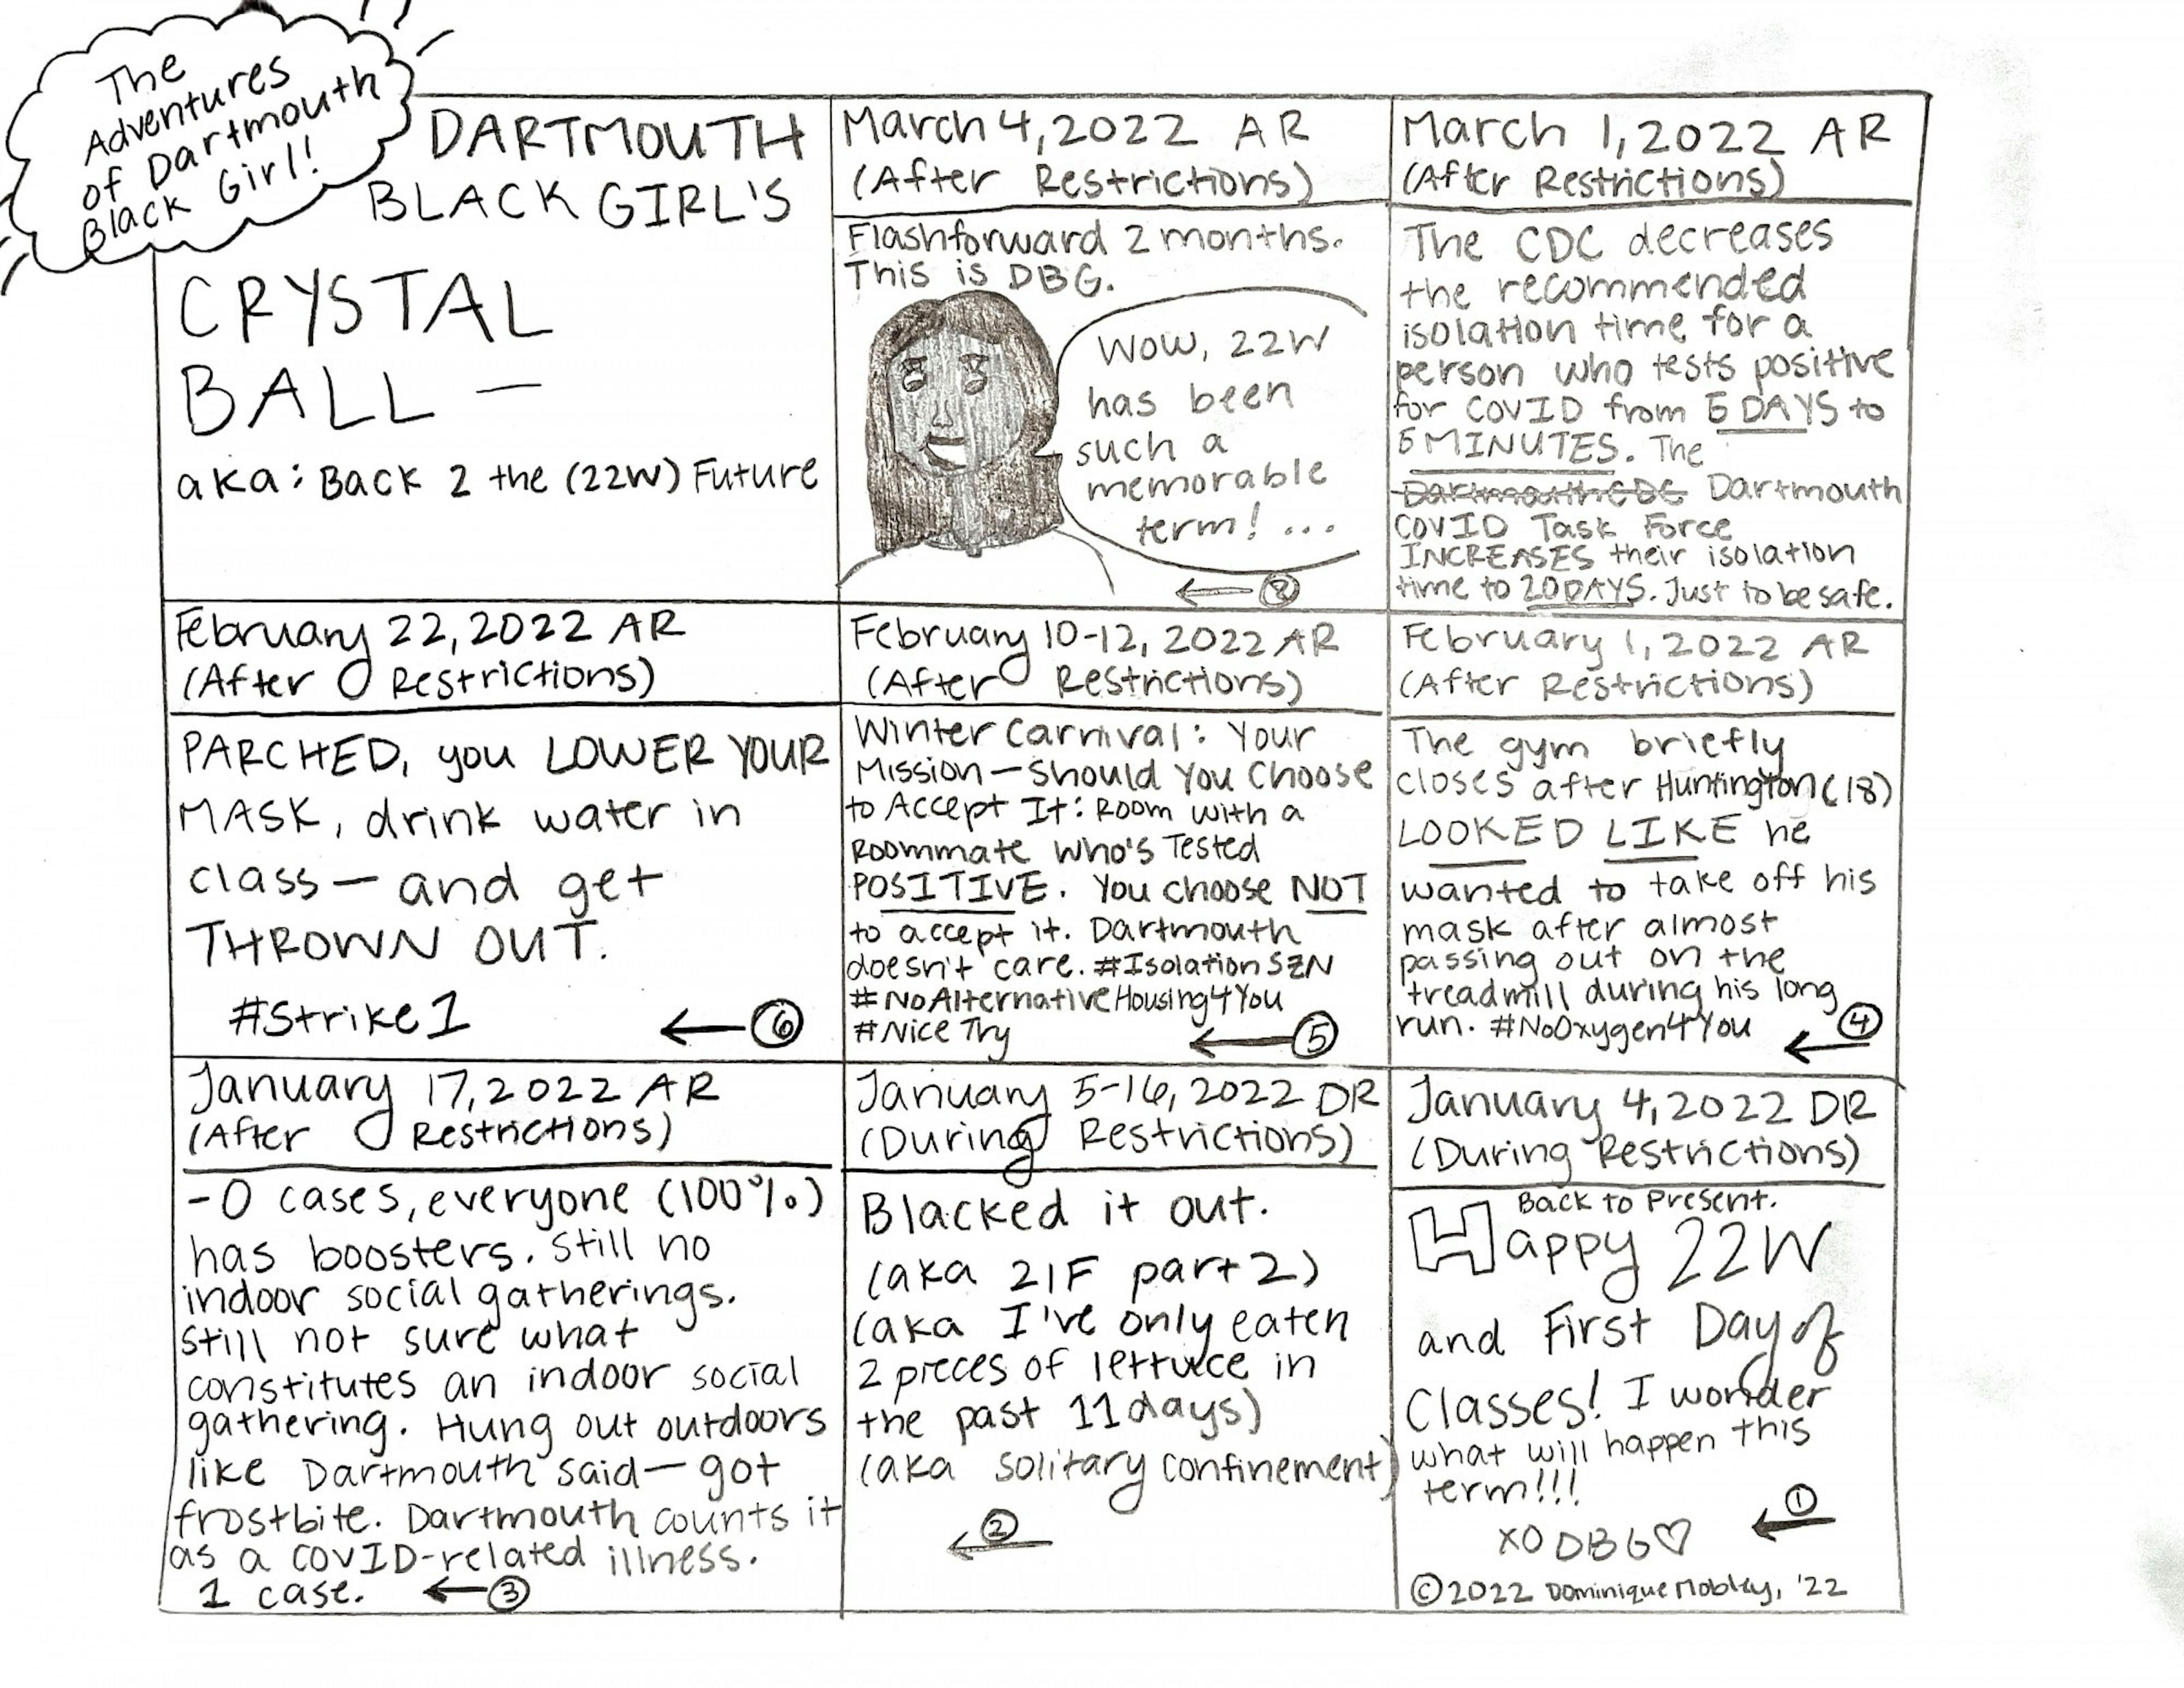 The
Adventures
of Dartmouth
Black Girl!
DARTMOUTH
BLACK GIRL'S
CRYSTAL
BALL —
aka: Back 2 the (22W) Future
March 4, 2022 AR
(After Restrictions)
Flashforward 2 months.
This is DBG.
Wow, 22W
has been
such a
memorable
term! ...
← 8
March 1, 2022 AR
(After Restrictions)
The CDC decreases
the recommended
isolation time for a
person who tests positive
for COVID from 5 DAYS to
5 MINUTES. The
Dartmouth CDC Dartmouth
COVID Task Force
INCREASES their isolation
time to 20 DAYS. Just to be safe.
February 22, 2022 AR
(After Restrictions)
PARCHED, you LOWER YOUR
MASK, drink water in
class — and get
THROWN OUT.
#Strike1
← 6
February 10-12, 2022 AR
(After Restrictions)
Winter Carnival: Your
Mission — Should You Choose
to Accept It: Room with a
Roommate Who's Tested
POSITIVE. You choose NOT
to accept it. Dartmouth
doesn't care. #IsolationSZN
#NoAlternativeHousing4You
#Nice Try
← 5
February 1, 2022 AR
(After Restrictions)
The gym briefly
closes after Huntington (18)
LOOKED LIKE he
wanted to take off his
mask after almost
passing out on the
treadmill during his long
run. #NoOxygen4You
← 4
January 17, 2022 AR
(After Restrictions)
-0 cases, everyone (100%)
has boosters. Still no
indoor social gatherings.
Still not sure what
constitutes an indoor social
gathering. Hung out outdoors
like Dartmouth said — got
frostbite. Dartmouth counts it
as a COVID-related illness.
1 case.
← 3
January 5-16, 2022 DR
(During Restrictions)
Blacked it out.
(aka 21F part 2)
(aka I've only eaten
2 pieces of lettuce in
the past 11 days)
(aka solitary confinement)
← 2
January 4, 2022 DR
(During Restrictions)
Back to Present.
Happy 22W
and First Day of
Classes! I wonder
what will happen this
term!!!
XO DBG♡
← 1
©2022 Dominique Mobley, '22